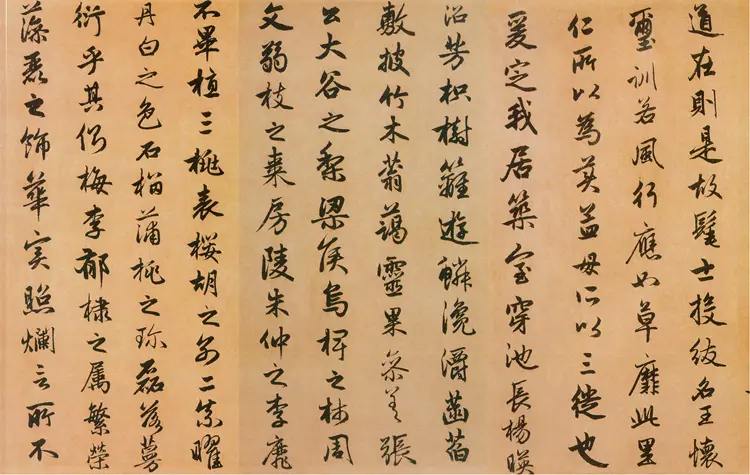 道在則是故髦士投紱名王懷
璽訓若風行應如草靡此里
仁所以為美孟母所以三徙也
爰定我居築室穿池長楊暎
沼芳枳樹籬遊鱗瀺灂菡萏
敷披竹木蓊藹靈果参差張
公大谷之梨梁侯烏椑之柿周
文弱枝之棗房陵朱仲之李靡
不畢植三桃表櫻胡之別二柰曜
丹白之色石榴蒲桃之珍磊落蔓
衍乎其側梅李郁棣之属繁榮
藻麗之飾華实照爛言所不